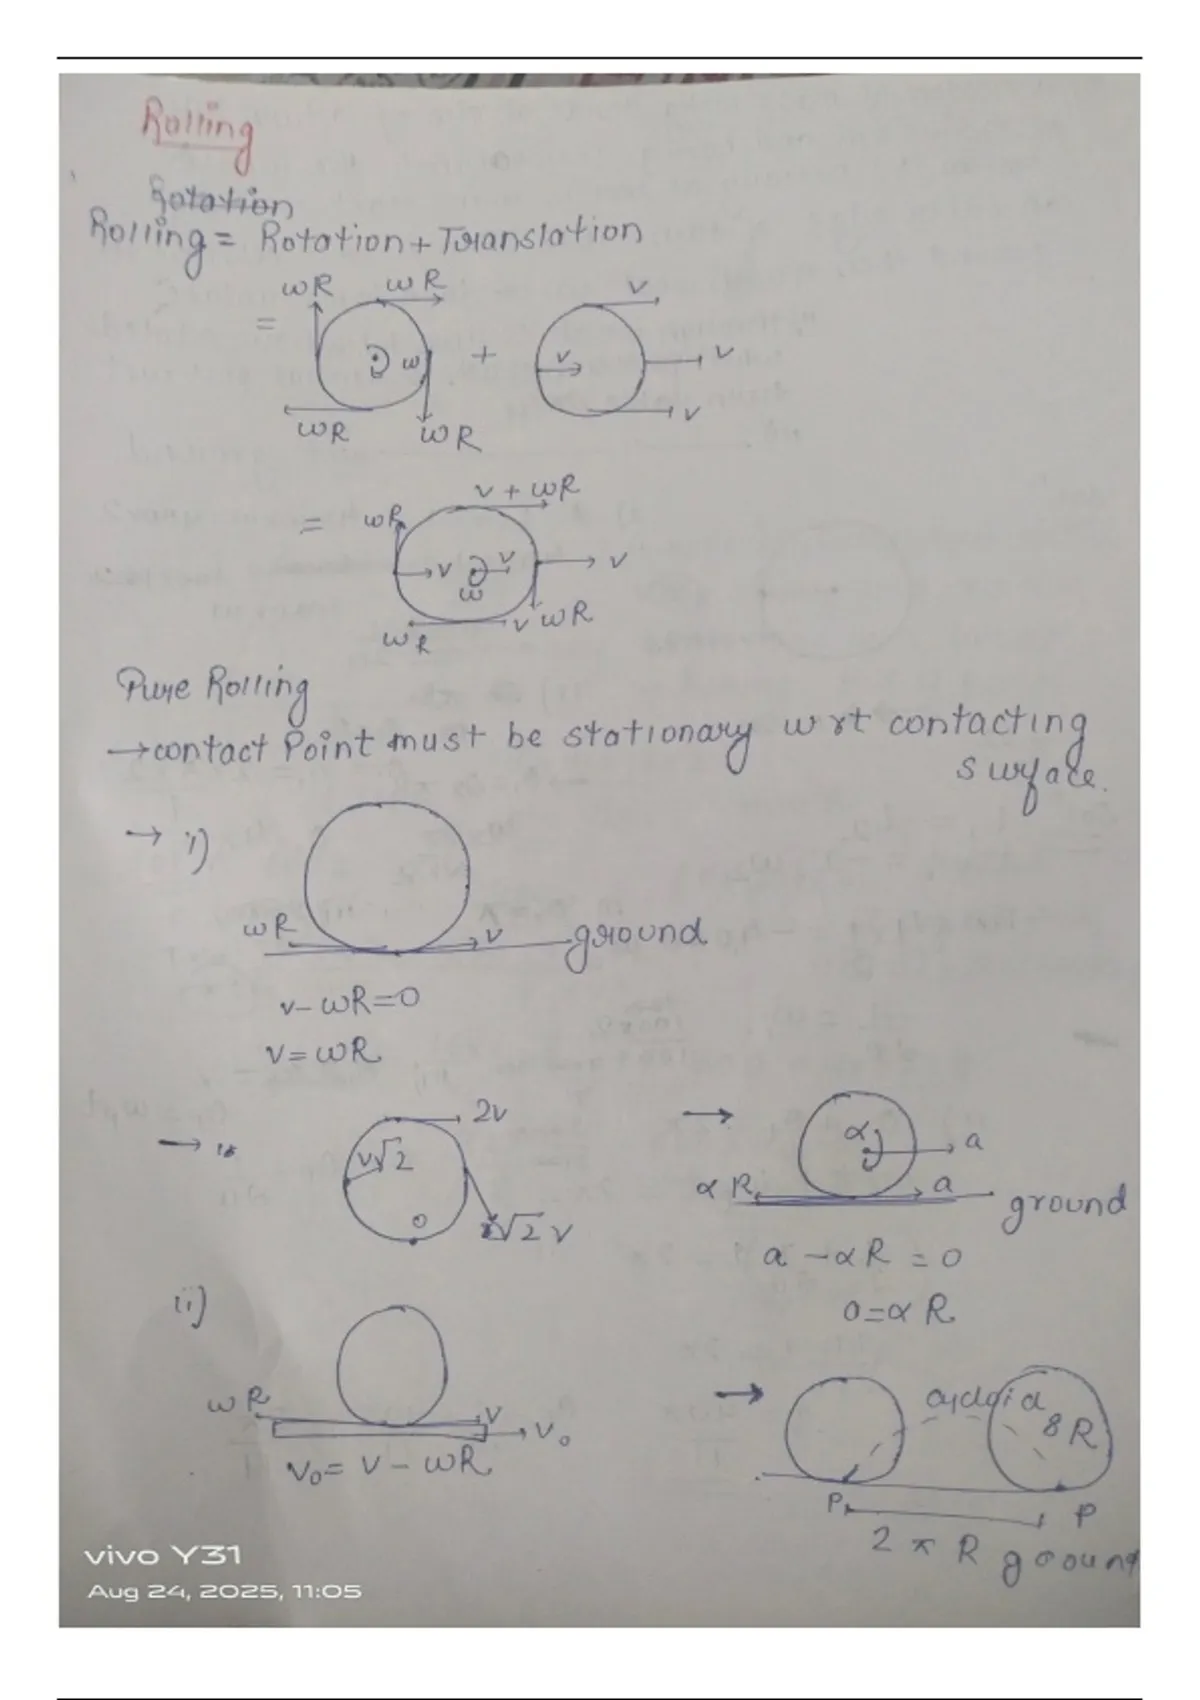 Rolling
Rotation
Rolling = Rotation + Translation
ωR ωR v
= ω + v v
ωR ωR v
v + ωR
= ωR v v v
ω
ωR v ωR
Pure Rolling
→ contact Point must be stationary wrt contacting
surface.
→ i)
ωR v ground
v - ωR = 0
v = ωR
→ 2v → α a
v√2 αR a ground
0 √2 v
a - αR = 0
a = αR
ii)
ωR v v₀
v₀ = v - ωR
→ cycloid
8R
P P
2πR ground
vivo Y31
Aug 24, 2025, 11:05